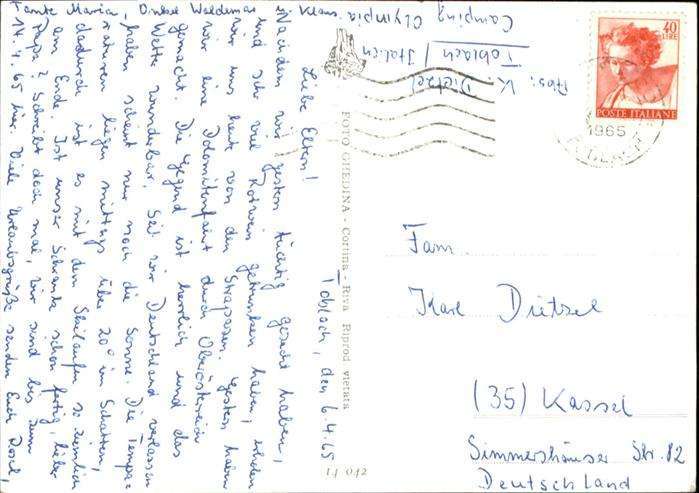 Toblach, den 6.4.65
Liebe Eltern!
Nachdem wir gestern tüchtig gezecht haben,
und sehr viel Rotwein getrunken haben, erholen
wir uns heute von den Strapazen. Gestern haben
wir eine Dolomitenfahrt durch Oberösterreich
gemacht. Die Gegend ist herrlich und das
Wetter wunderbar. Seit wir Deutschland verlassen
haben, scheint nur noch die Sonne. Die Tempe-
raturen liegen mittags über 20° im Schatten,
dadurch ist es mit dem Skilaufen ziemlich
am Ende. Ist unser Schrank schon fertig, lieber
Papa? Schreibt doch mal, wir sind bis zum
14.4.65 hier. Viele Urlaubsgrüße senden Euch Rosel,
Klaus,
Tante Maria, Onkel Waldemar
Abs: K. Dietzel
Toblach / Italien
Camping Olympia
FOTO GHEDINA - Cortina - Riva Riprod vietata
14 042
40
LIRE
POSTE ITALIANE
1965
Fam.
Karl Dietzel
(35) Kassel
Simmershäuser Str. 82
Deutschland